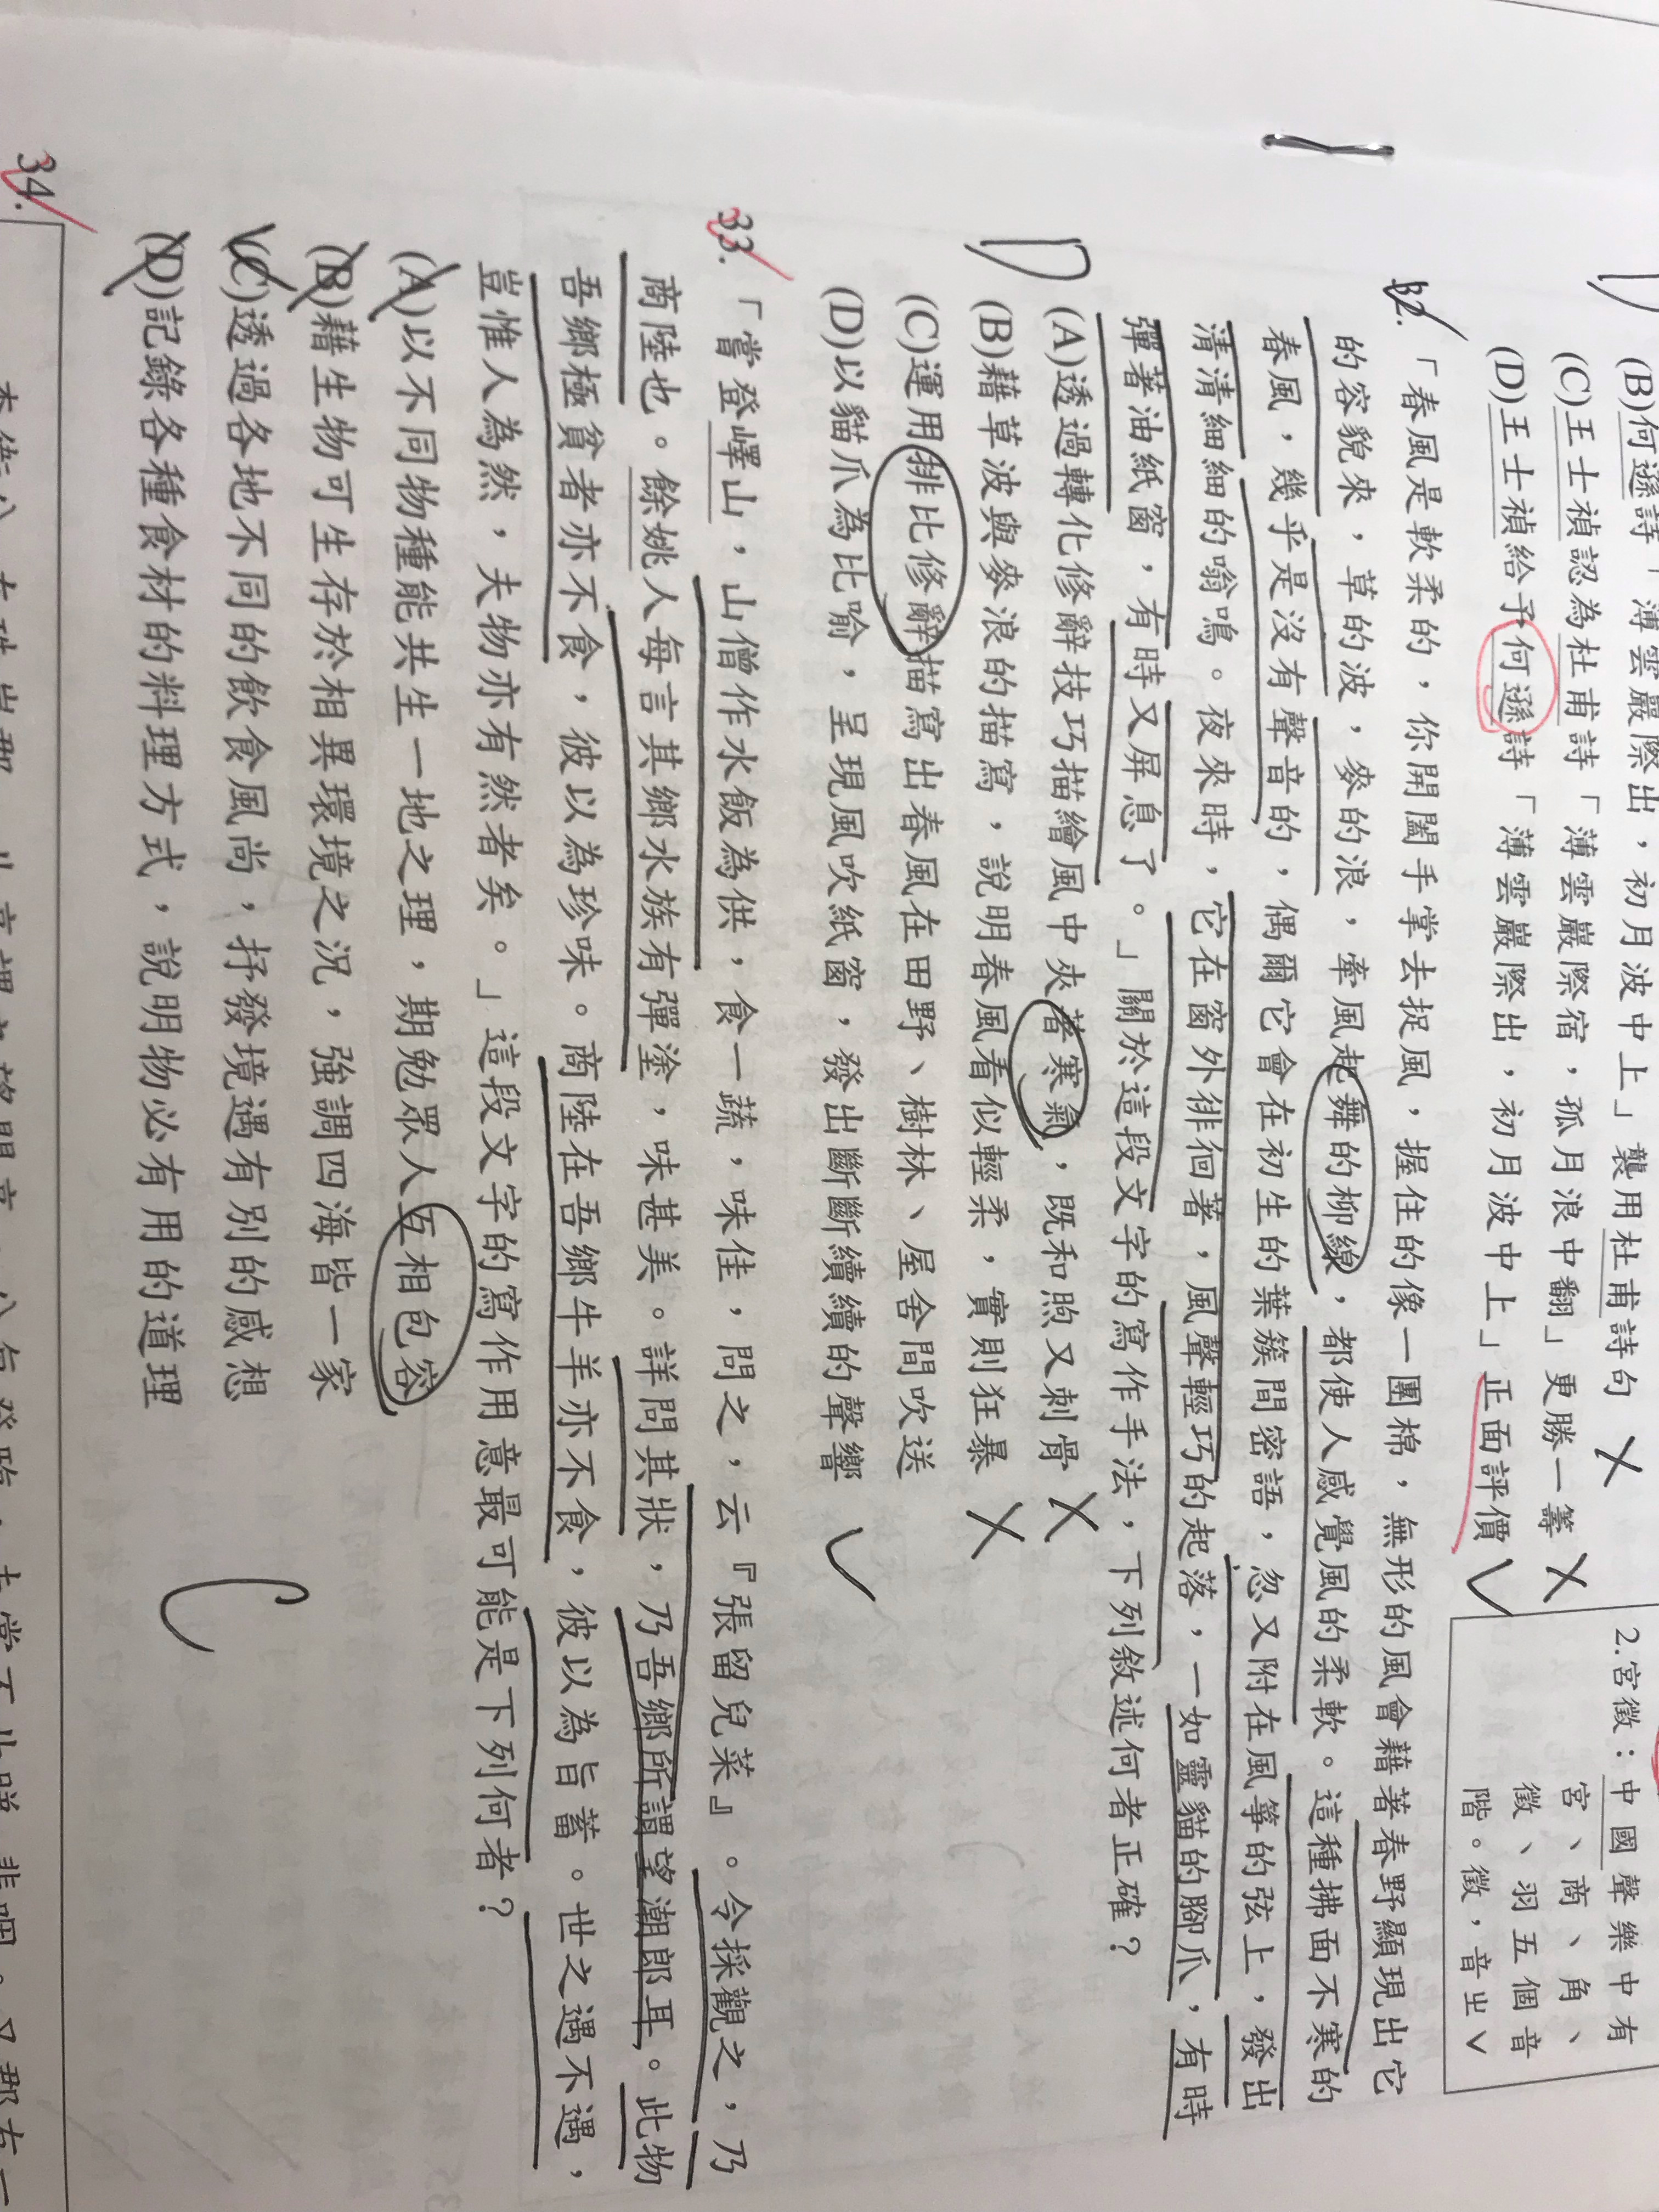 (B)何遜詩「薄雲巖際出，初月波中上」襲用杜甫詩句 ✗
(C)王士禎認為杜甫詩「薄雲巖際宿，孤月浪中翻」更勝一籌 ✗
(D)王士禎給予何遜詩「薄雲巖際出，初月波中上」正面評價 ✓
2.宮徵：中國聲樂中有
宮、商、角、
徵、羽五個音
階。徵，音ㄓˇ
D
32.「春風是軟柔的，你開闔手掌去捉風，握住的像一團棉，無形的風會藉著春野顯現出它
的容貌來，草的波，麥的浪，牽風起舞的柳線，都使人感覺風的柔軟。這種拂面不寒的
春風，幾乎是沒有聲音的，偶爾它會在初生的葉簇間密語，忽又附在風箏的弦上，發出
清清細細的嗡鳴。夜來時，它在窗外徘徊著，風聲輕巧的起落，一如靈貓的腳爪，有時
彈著油紙窗，有時又屏息了。」關於這段文字的寫作手法，下列敘述何者正確？
(A)透過轉化修辭技巧描繪風中夾著寒氣，既和煦又刺骨 ✗
(B)藉草波與麥浪的描寫，說明春風看似輕柔，實則狂暴 ✗
(C)運用排比修辭描寫出春風在田野、樹林、屋舍間吹送
(D)以貓爪為比喻，呈現風吹紙窗，發出斷斷續續的聲響 ✓
33.「嘗登嶧山，山僧作水飯為供，食一蔬，味佳，問之，云『張留兒菜』。令採觀之，乃
商陸也。餘姚人每言其鄉水族有彈塗，味甚美。詳問其狀，乃吾鄉所謂望潮郎耳。此物
吾鄉極貧者亦不食，彼以為珍味。商陸在吾鄉牛羊亦不食，彼以為旨蓄。世之遇不遇，
豈惟人為然，夫物亦有然者矣。」這段文字的寫作用意最可能是下列何者？
(A)以不同物種能共生一地之理，期勉眾人互相包容
(B)藉生物可生存於相異環境之況，強調四海皆一家
(C)透過各地不同的飲食風尚，抒發境遇有別的感想
(D)記錄各種食材的料理方式，說明物必有用的道理
C
34.